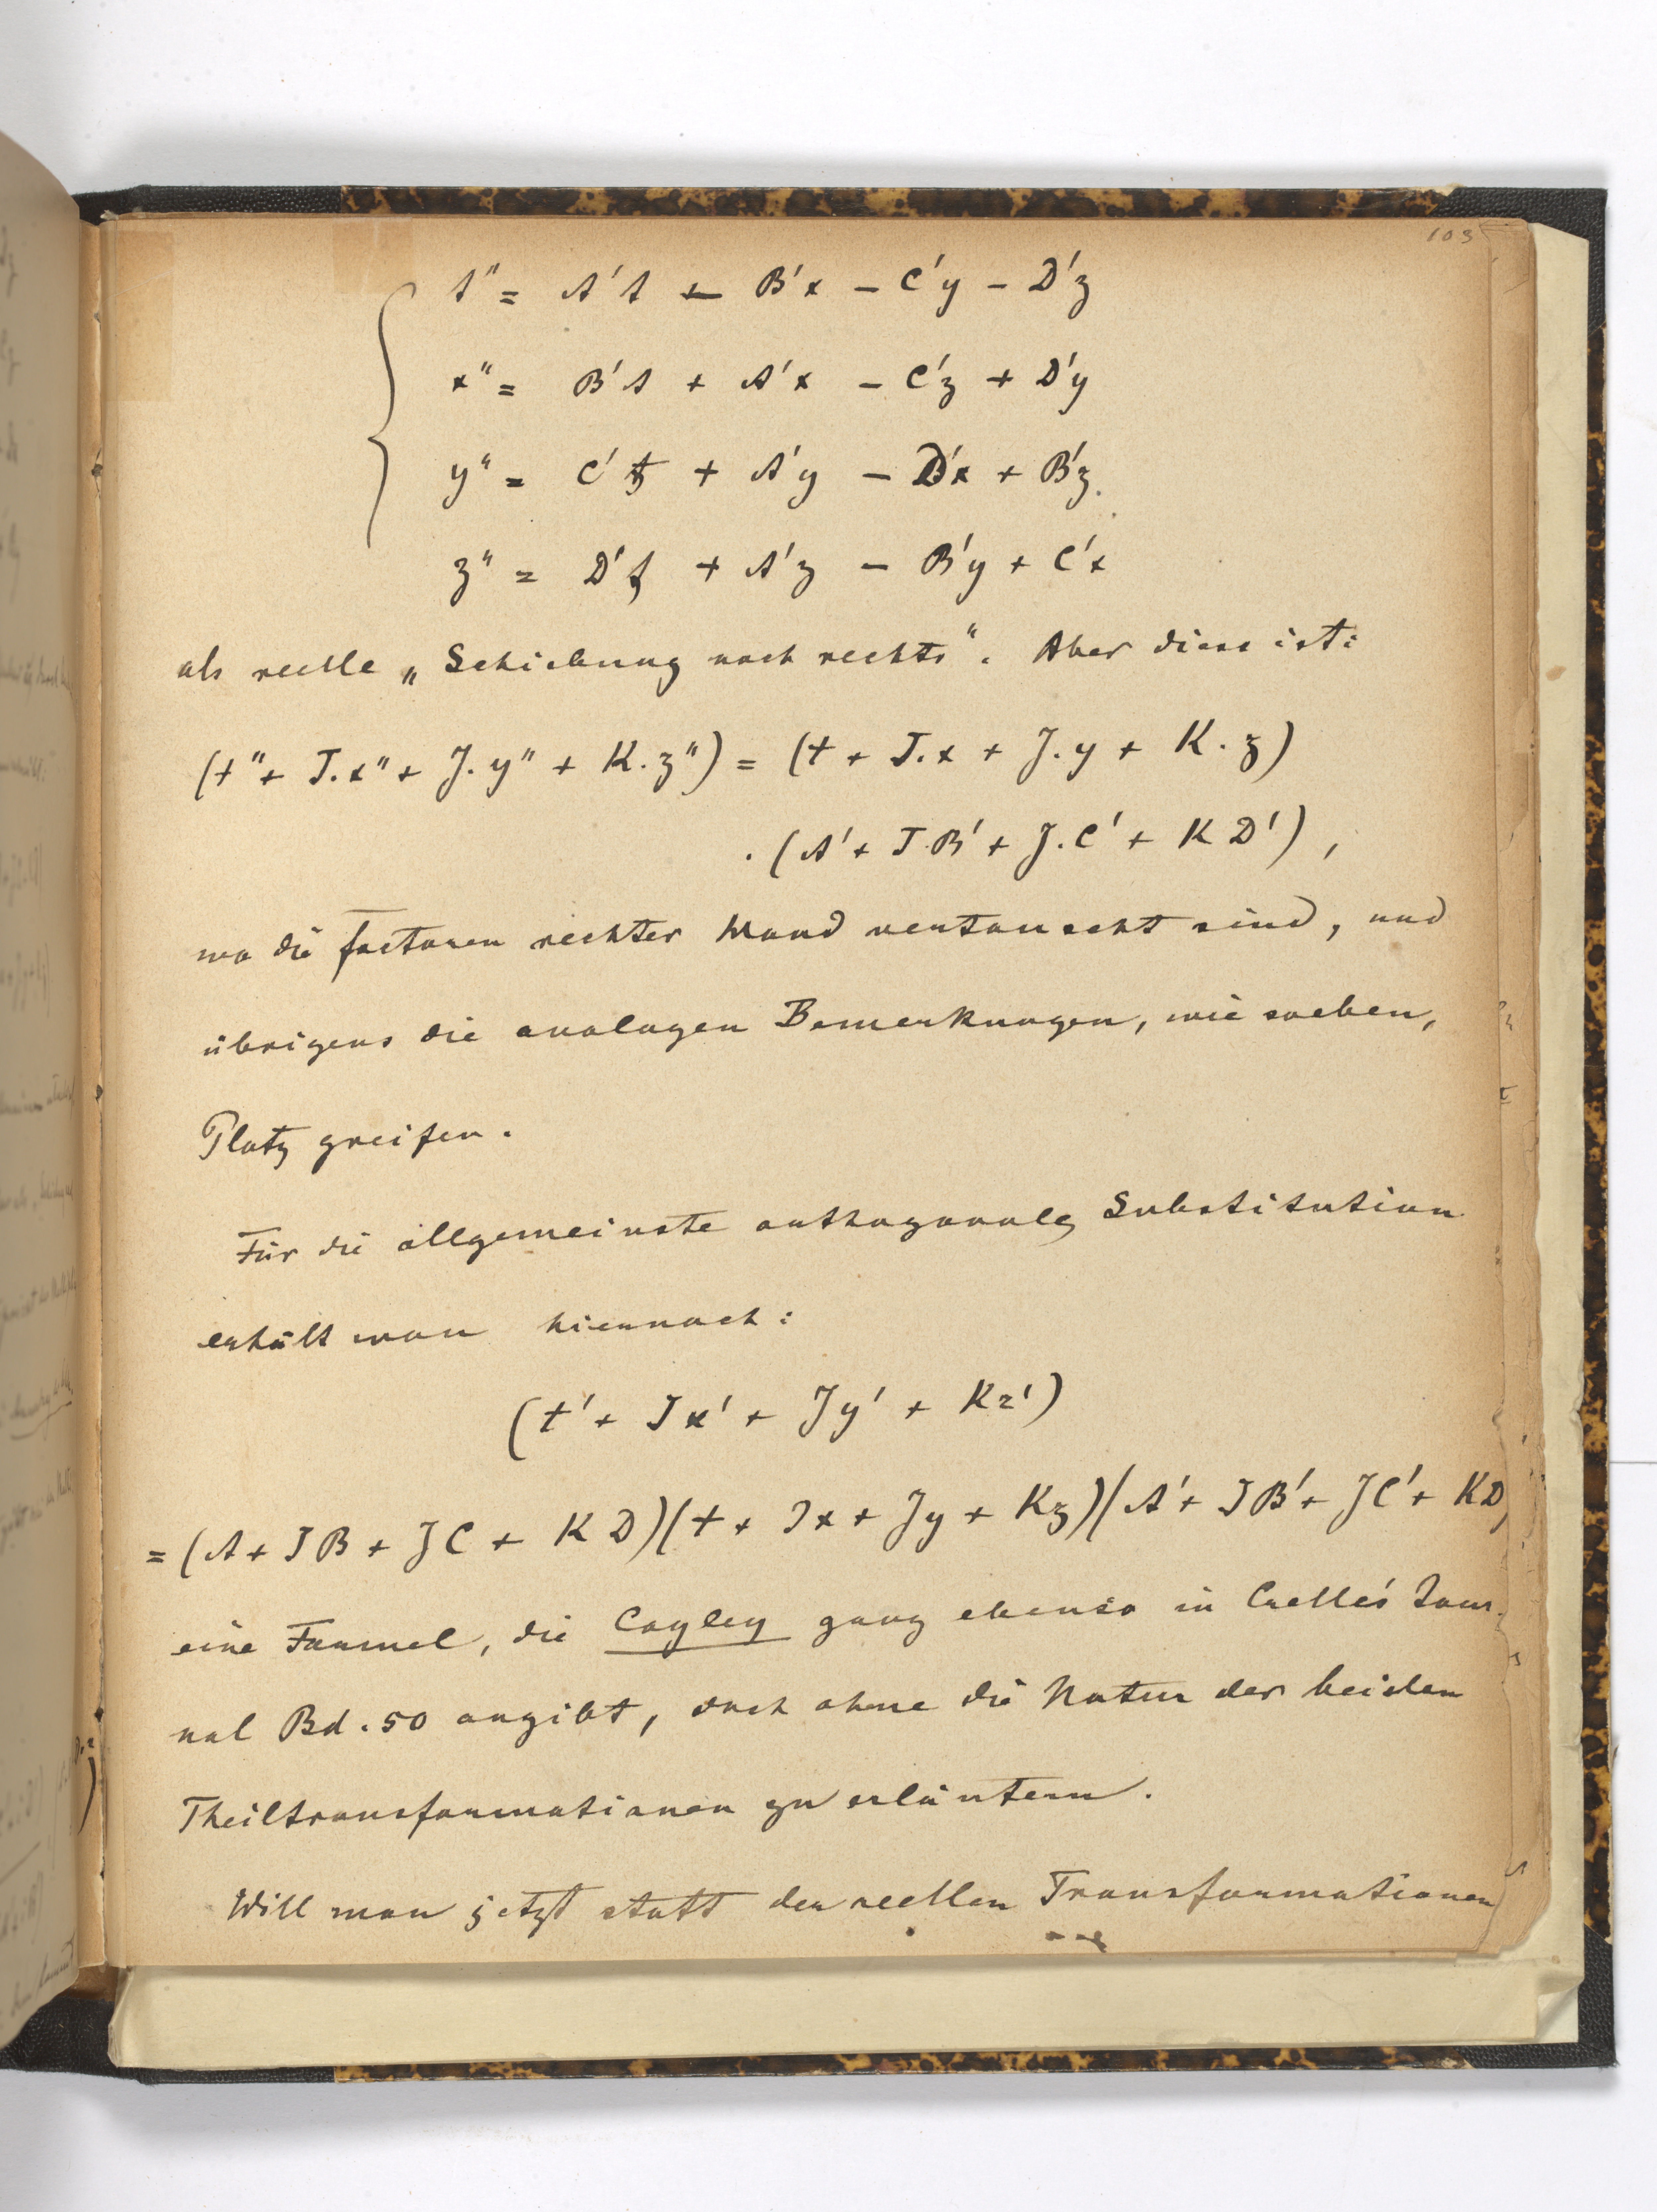 103
t" = A't - B'x - C'y - D'z
x" = B't + A'x - C'z + D'y
y" = C't + A'y - D'x + B'z
z" = D't + A'z - B'y + C'x
als reelle „Schiebung nach rechts“. Aber diese ist:
(t" + J.x" + J.y" + K.z") = (t + J.x + J.y + K.z)
.(A' + J.B' + J.C' + KD'),
wo die Factoren rechter Hand vertauscht sind, und
übrigens die analogen Bemerkungen, wie soeben,
Platz greifen.
Für die allgemeinste orthogonale Substitution
erhält man hiernach:
(t' + Jx' + Jy' + Kz')
= (A + JB + JC + KD)(t + Jx + Jy + Kz)(A' + JB' + JC' + KD
eine Formel, die Cayley ganz ebenso in Crelle's Jour-
nal Bd. 50 angibt, doch ohne die Natur der beiden
Theiltransformationen zu erläutern.
Will man jetzt statt der reellen Transformationen